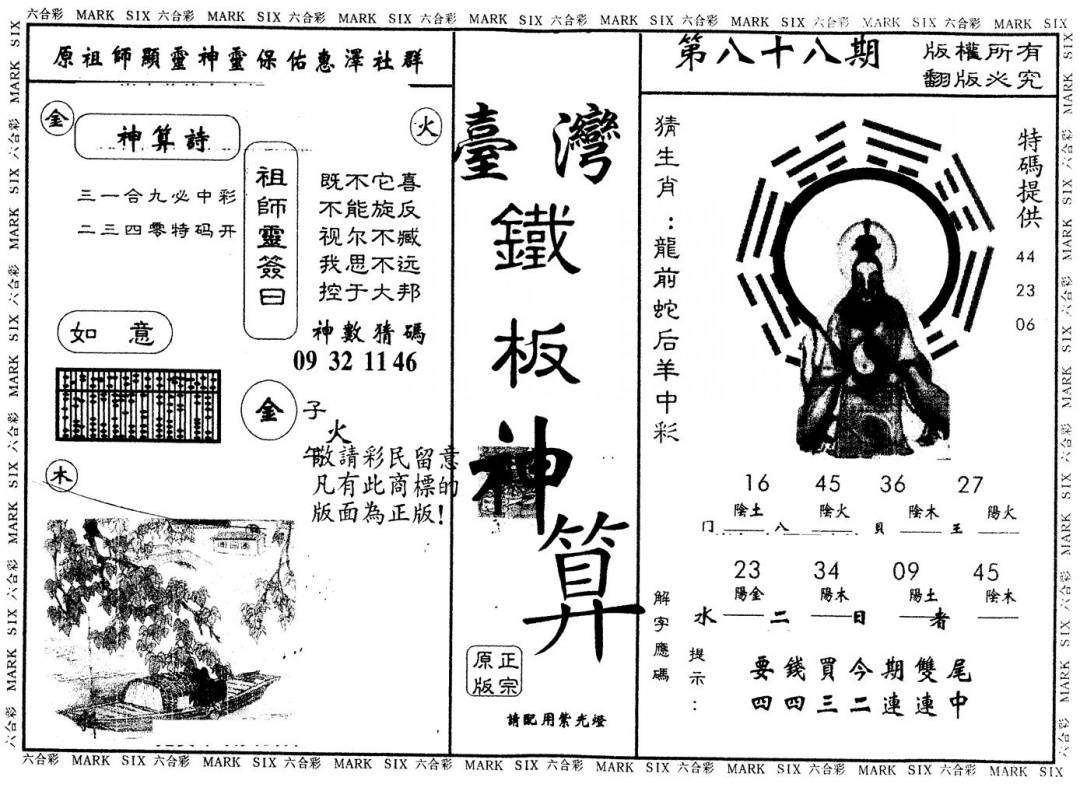 六合彩 MARK SIX 六合彩 MARK SIX 六合彩 MARK SIX 六合彩 MARK SIX 六合彩 MARK SIX 六合彩 MARK SIX 六合彩 MARK SIX 六合彩 MARK SIX
原祖師顯靈神靈保佑惠澤社群
金
火
神算詩
三一合九必中彩
二三四零特码开
祖師靈簽曰
既不它喜
不能旋反
视尔不臧
我思不远
控于大邦
神數猜碼
09 32 11 46
如意
金
子
火
午
木
敬請彩民留意
凡有此商標的
版面為正版!
臺灣
鐵
板
神
算
正宗
原版
請配用紫光燈
第八十八期
版權所有
翻版必究
猜生肖:龍前蛇后羊中彩
特碼提供
44
23
06
16 45 36 27
陰土 陰火 陰木 陽火
门 八 貝 王
23 34 09 45
陽金 陽木 陽土 陰木
水 二 日 者
解字應碼
提示:
要錢買今期雙尾
四四三二連連中
六合彩 MARK SIX 六合彩 MARK SIX 六合彩 MARK SIX 六合彩 MARK SIX 六合彩 MARK SIX 六合彩 MARK SIX 六合彩 MARK SIX 六合彩 MARK SIX